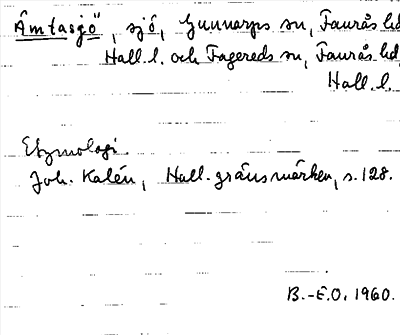 Åmtasjö, sjö, Gunnarps sn, Faurås hd
Hall. l. och Fagereds sn, Faurås hd,
Hall. l.
Etymologi.
Joh. Kalén, Hall. gränsmärken, s. 128.
B.-E.O. 1960.